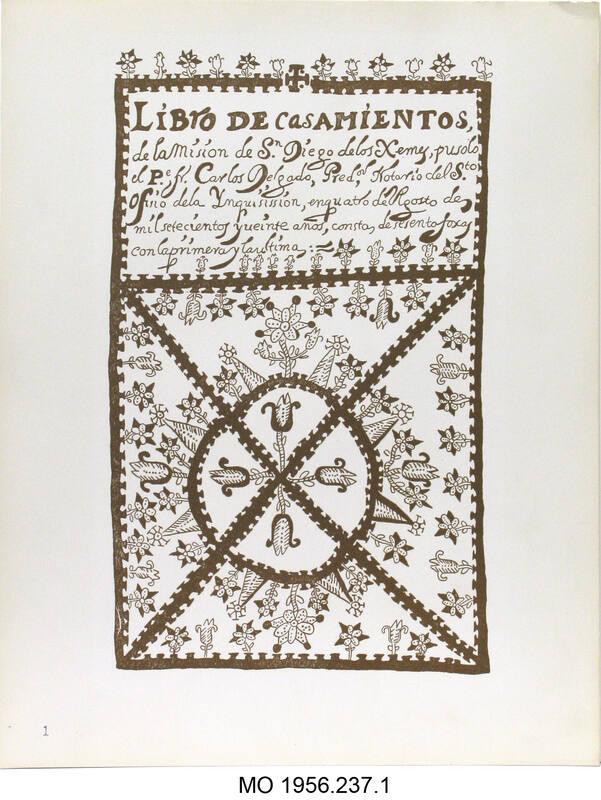 LiBro DE CaSAMIENTOS,
de la Mision de S.n Diego de los Xemes, pusolo
el P.e fr. Carlos Delgado, Pred.or Notario del S.to
Ofisio dela Ynquisission, enquatro de Agosto de
mil setecientos y ueinte años, consta, de sesenta foxas
con laprimera ylaultima,
1
MO 1956.237.1